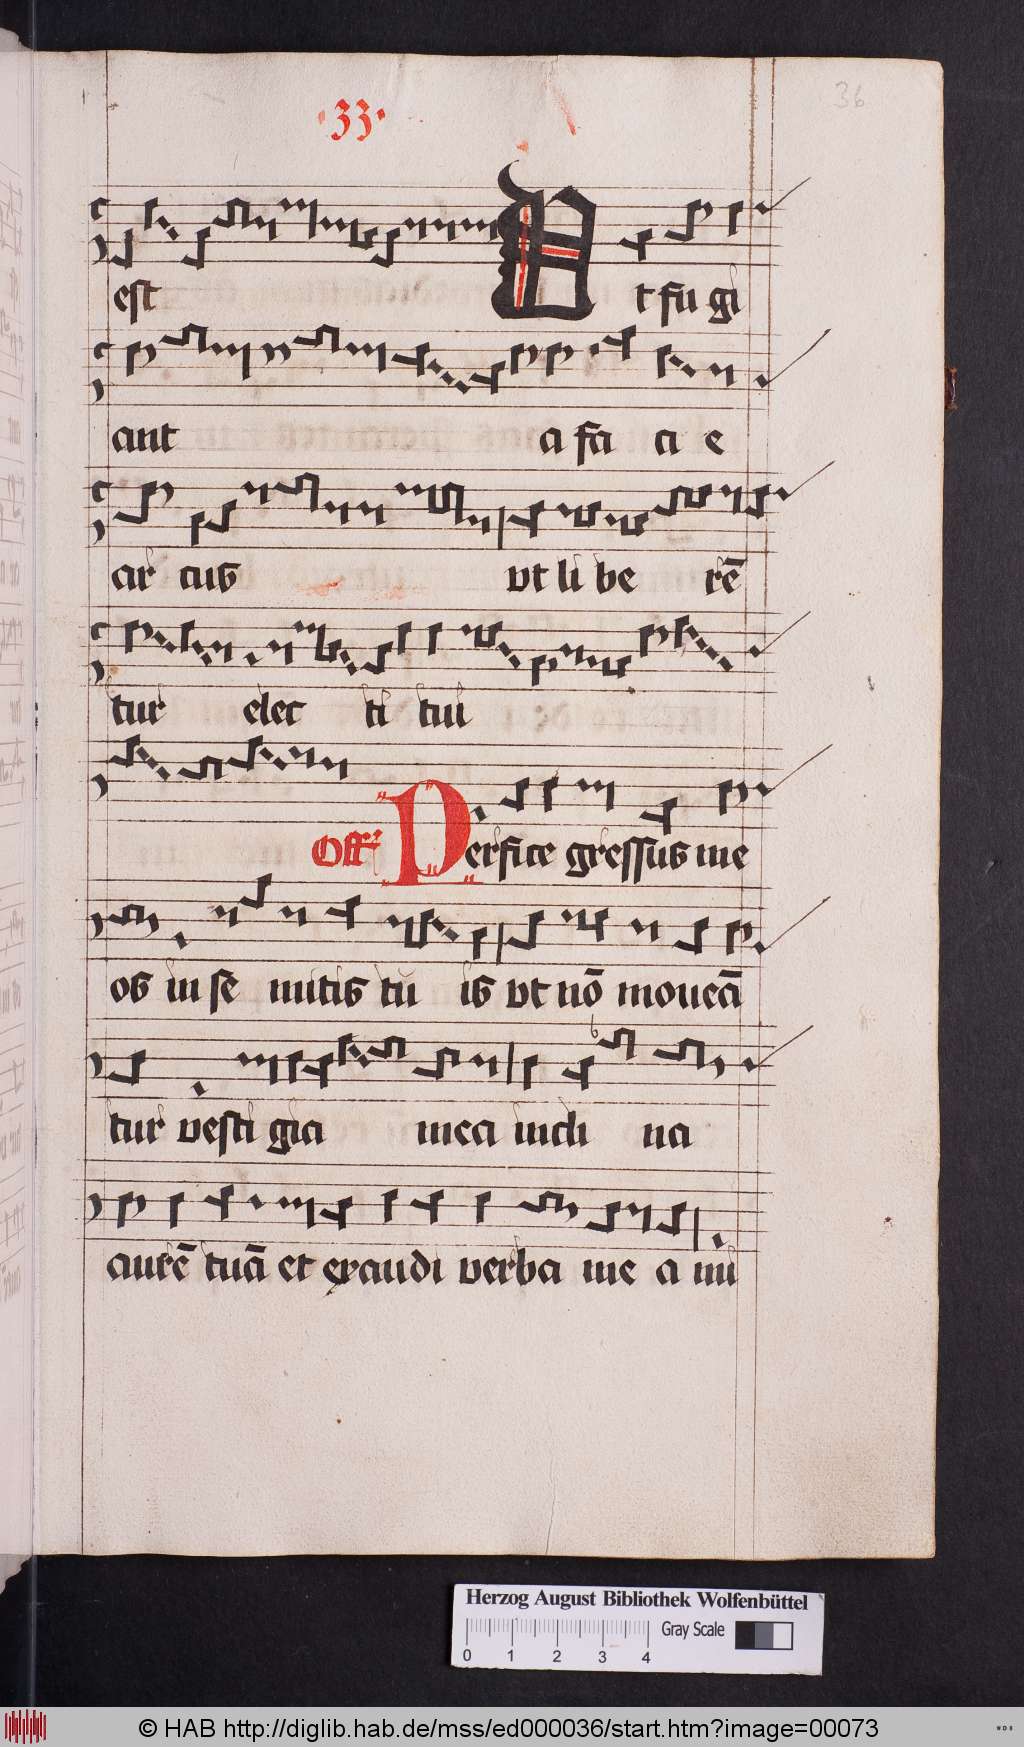 ·33·
36
est Vt fu gi
ant a fa ci e
ar cus vt li be rē
tur elec ti tui
Off Perfice gressus me
os in se mitis tu is vt nō moueā
tur vesti gia mea incli na
aurē tuā et exaudi verba me a mi
Herzog August Bibliothek Wolfenbüttel
Gray Scale
0 1 2 3 4
© HAB http://diglib.hab.de/mss/ed000036/start.htm?image=00073